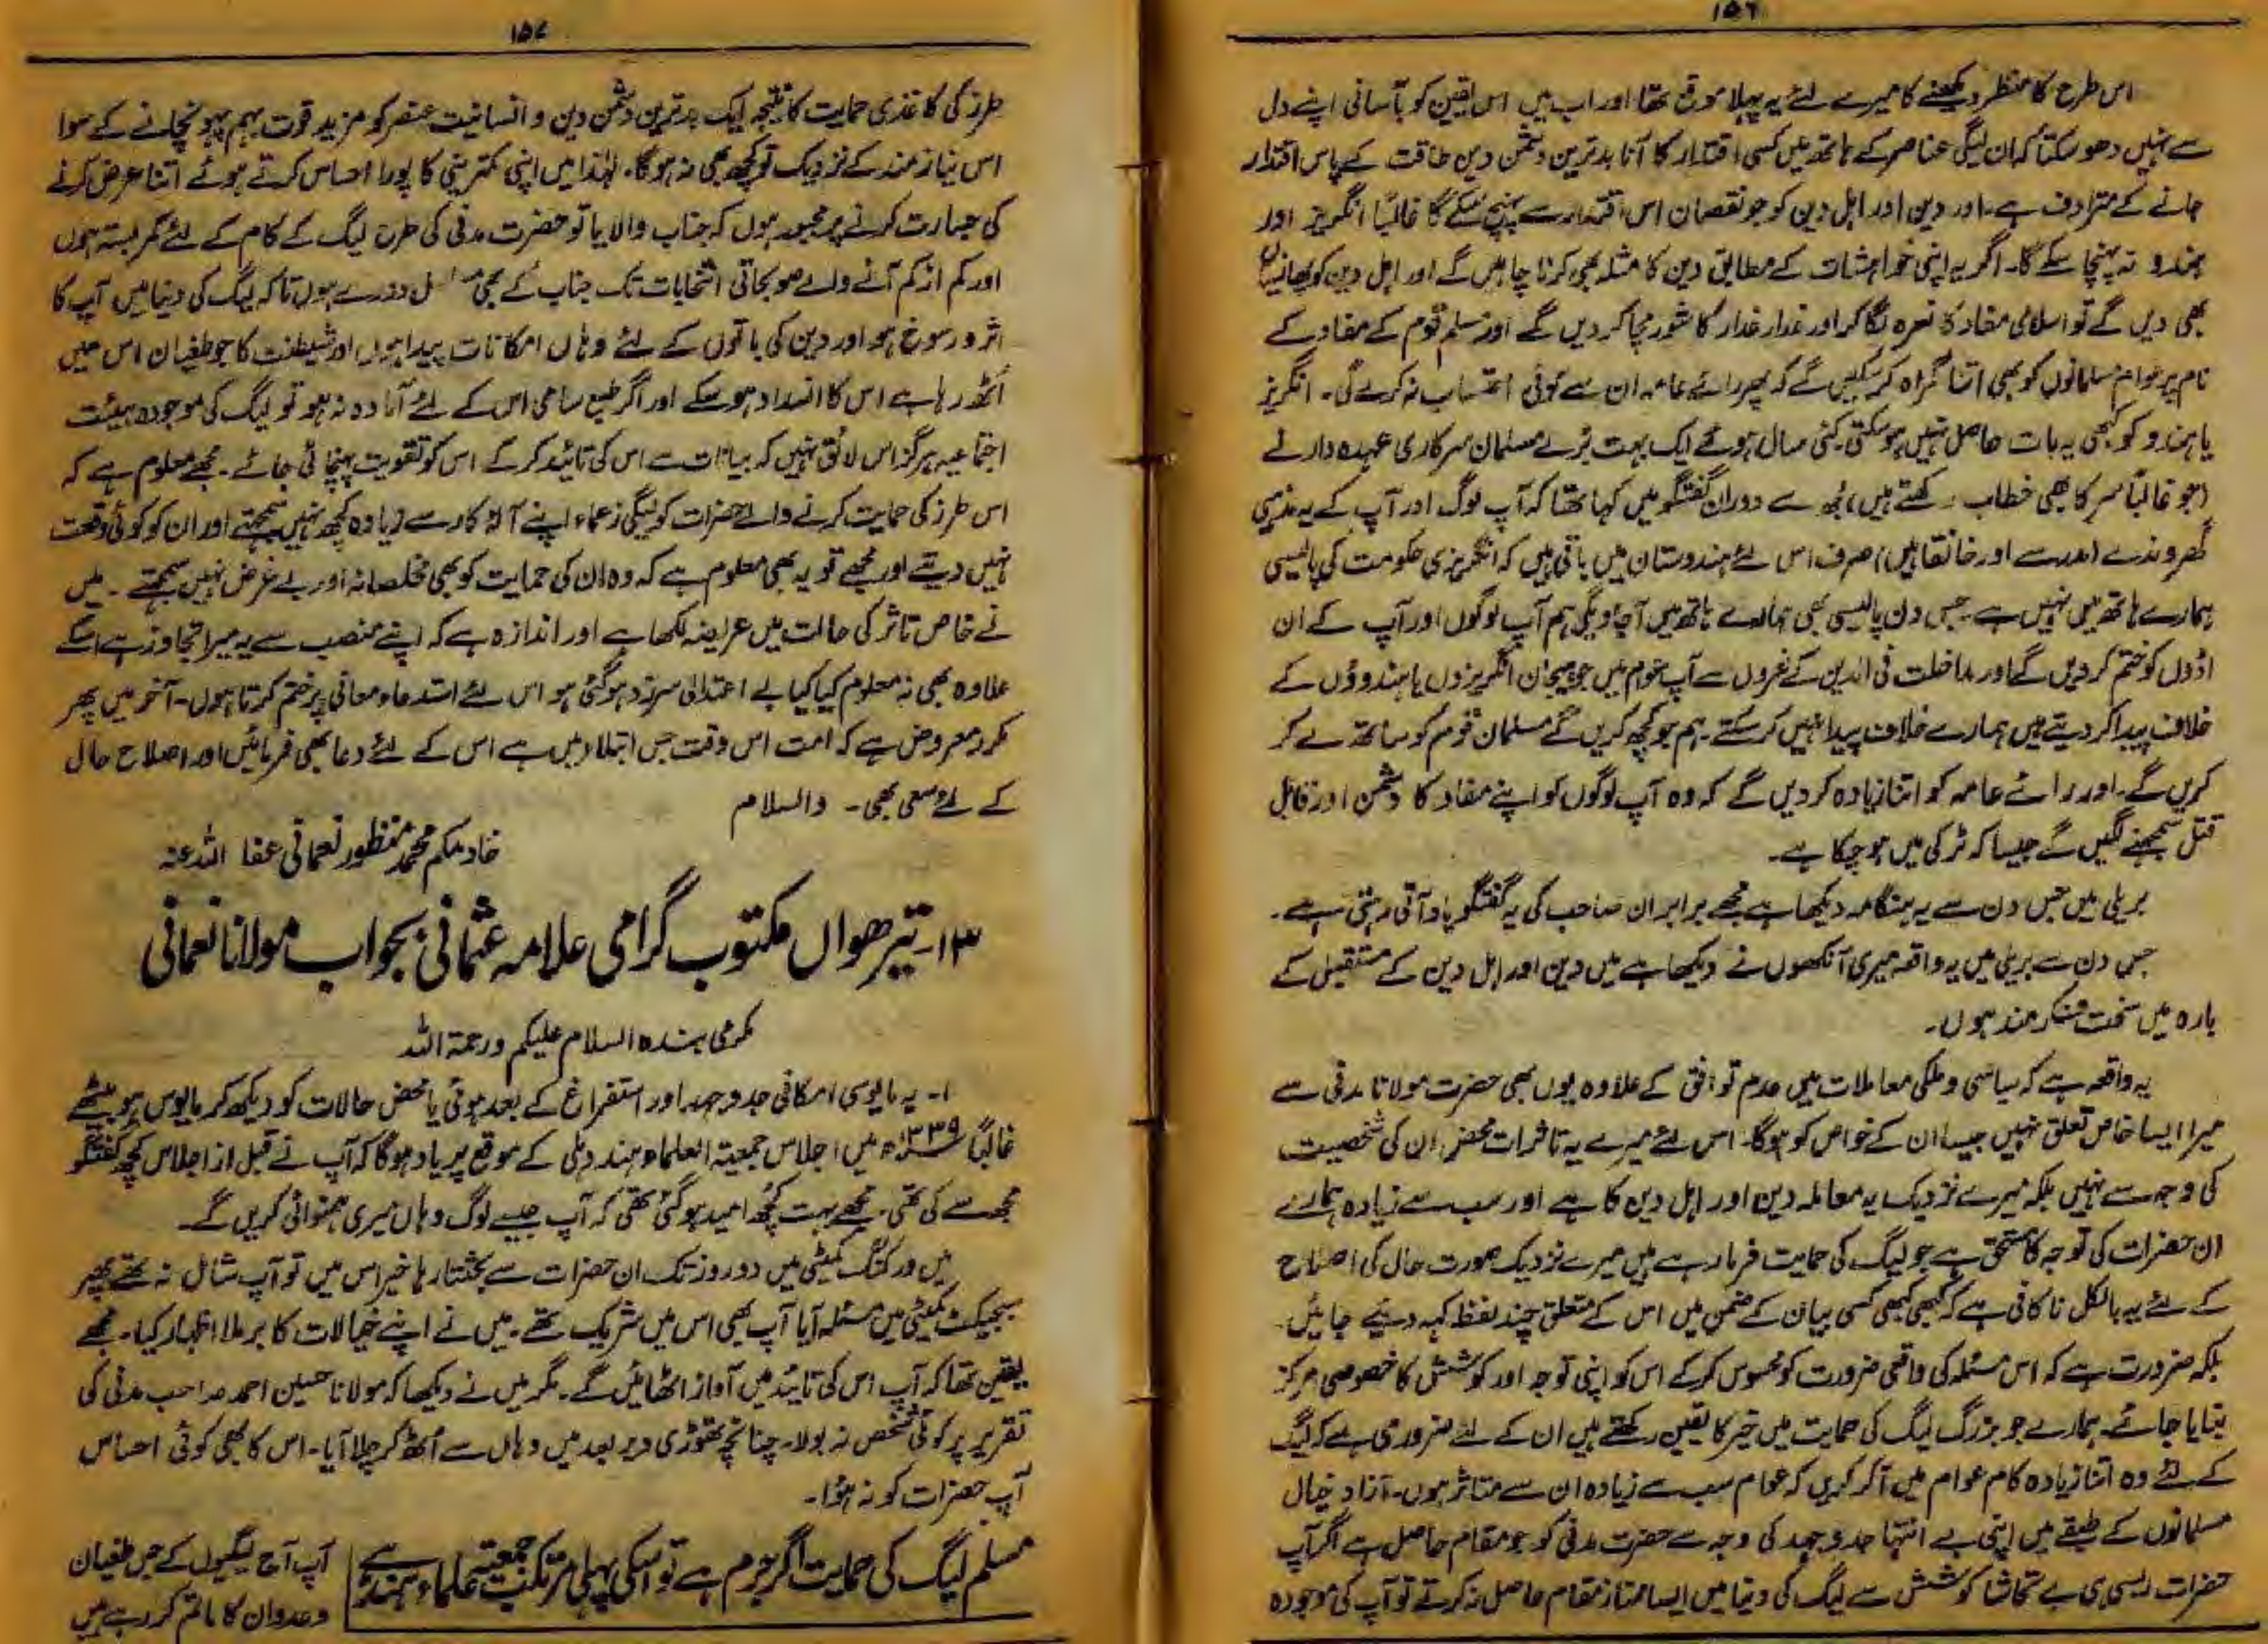 ۱۵۶
اس طرح کا منظر دیکھنے کا میرے لئے یہ پہلا موقع تھا اور اب میں اس یقین کو بآسانی اپنے دل
سے نہیں دھو سکتا کہ ان لیگی عناصر کے ہاتھ میں کسی اقتدار کا آنا بدترین دشمن دین طاقت کے پاس اقتدار
جانے کے مترادف ہے۔ اور دین اور اہل دین کو جو نقصان اس اقتدار سے پہنچ سکے گا غالباً انگریز اور
ہندو نہ پہنچا سکے گا۔ اگر یہ اپنی خواہشات کے مطابق دین کا مثلہ بھی کرنا چاہیں گے اور اہل دین کو پھانسیاں
بھی دیں گے تو اسلامی مفاد کا نعرہ لگا کر اور غدار غدار کا شور مچا کر دیں گے اور مسلم قوم کے مفاد کے
نام پر عوام مسلمانوں کو بھی اتنا گمراہ کر سکیں گے کہ پھر رائے عامہ ان سے کوئی احتساب نہ کرے گی۔ انگریز
یا ہندو کو کبھی یہ بات حاصل نہیں ہو سکتی۔ کئی سال ہوئے ایک بہت بڑے مسلمان سرکاری عہدہ دار نے
(جو غالباً سر کا بھی خطاب رکھتے ہیں) مجھ سے دوران گفتگو میں کہا تھا کہ آپ لوگ اور آپ کے یہ مذہبی
گھروندے (مدرسے اور خانقاہیں) صرف اس لئے ہندوستان میں باقی ہیں کہ انگریزی حکومت کی پالیسی
ہمارے ہاتھ میں نہیں ہے۔ جس دن پالیسی بھی ہمارے ہاتھ میں آ جاویگی ہم آپ لوگوں اور آپ کے ان
اڈوں کو ختم کر دیں گے اور مداخلت فی الدین کے نعروں سے آپ عوام میں جو ہیجان انگریزوں یا ہندوؤں کے
خلاف پیدا کر دیتے ہیں ہمارے خلاف پیدا نہیں کر سکتے۔ ہم جو کچھ کریں گے مسلمان قوم کو ساتھ لے کر
کریں گے۔ اور رائے عامہ کو اتنا زیادہ کر دیں گے کہ وہ آپ لوگوں کو اپنے مفاد کا دشمن اور قابل
قتل سمجھنے لگیں گے جیسا کہ ٹرکی میں ہو چکا ہے۔
بریلی میں جس دن سے یہ ہنگامہ دیکھا ہے مجھے برابر ان صاحب کی یہ گفتگو یاد آتی رہتی ہے۔
جس دن سے بریلی میں یہ واقعہ میری آنکھوں نے دیکھا ہے میں دین اور اہل دین کے مستقبل کے
بارہ میں سخت فکر مند ہوں۔
یہ واقعہ ہے کہ سیاسی و ملکی معاملات میں عدم توافق کے علاوہ یوں بھی حضرت مولانا مدنی سے
میرا ایسا خاص تعلق نہیں جیسا ان کے خواص کو ہوگا۔ اس لئے میرے یہ تاثرات محض ان کی شخصیت
کی وجہ سے نہیں بلکہ میرے نزدیک یہ معاملہ دین اور اہل دین کا ہے اور سب سے زیادہ ہمارے
ان حضرات کی توجہ کا مستحق ہے جو لیگ کی حمایت فرما رہے ہیں میرے نزدیک صورت حال کی اصلاح
کے لئے یہ بالکل ناکافی ہے کہ کبھی کبھی کسی بیان کے ضمن میں اس کے متعلق چند لفظ کہہ دئیے جائیں۔
بلکہ ضرورت ہے کہ اس مسئلہ کی واقعی ضرورت کو محسوس کر کے اس کو اپنی توجہ اور کوشش کا خصوصی مرکز
بنایا جائے۔ ہمارے جو بزرگ لیگ کی حمایت میں خیر کا یقین رکھتے ہیں ان کے لئے ضروری ہے کہ لیگ
کے لئے وہ اتنا زیادہ کام عوام میں آ کر کریں کہ عوام سب سے زیادہ ان سے متاثر ہوں۔ آزاد خیال
مسلمانوں کے طبقے میں اپنی بے انتہا جد و جہد کی وجہ سے حضرت مدنی کو جو مقام حاصل ہے اگر آپ
حضرات ایسی ہی بے تحاشا کوشش سے لیگ کی دنیا میں ایسا ممتاز مقام حاصل نہ کرتے تو آپ کی موجودہ
۱۵۷
طرز کی کاغذی حمایت کا نتیجہ ایک بدترین دشمن دین و انسانیت عنصر کو مزید قوت بہم پہونچانے کے سوا
اس نیاز مند کے نزدیک تو کچھ بھی نہ ہوگا۔ لہٰذا میں اپنی کمترینی کا پورا احساس کرتے ہوئے اتنا عرض کرنے
کی جسارت کرنے پر مجبور ہوں کہ جناب والا یا تو حضرت مدنی کی طرح لیگ کے کام کے لئے کمربستہ ہوں
اور کم از کم آنے والے صوبجاتی انتخابات تک جناب کے بھی دورے ہوں تاکہ لیگ کی دنیا میں آپ کا
اثر و رسوخ ہو اور دین کی باتوں کے لئے وہاں امکانات پیدا ہوں اور شیطنت کا جو طغیان اس میں
اُٹھ رہا ہے اس کا انسداد ہو سکے اور اگر طبع سامی اس کے لئے آمادہ نہ ہو تو لیگ کی موجودہ ہیئت
اجتماعیہ ہرگز اس لائق نہیں کہ بیانات سے اس کی تائید کر کے اس کو تقویت پہنچائی جائے۔ مجھے معلوم ہے کہ
اس طرز کی حمایت کرنے والے حضرات کو لیگی زعماء اپنے آلۂ کار سے زیادہ کچھ نہیں سمجھتے اور ان کو کوئی وقعت
نہیں دیتے اور مجھے تو یہ بھی معلوم ہے کہ وہ ان کی حمایت کو بھی مخلصانہ اور بے غرض نہیں سمجھتے۔ میں
نے خاص تاثر کی حالت میں عریضہ لکھا ہے اور اندازہ ہے کہ اپنے منصب سے یہ میرا تجاوز ہے اسکے
علاوہ بھی نہ معلوم کیا کیا بے اعتدالی سرزد ہو گئی ہو اس لئے استدعاء معافی پر ختم کرتا ہوں۔ آخر میں پھر
مکرر معروض ہے کہ امت اس وقت جس ابتلاء میں ہے اس کے لئے دعا بھی فرمائیں اور اصلاح حال
کے لئے سعی بھی۔ والسلام
خادمکم محمد منظور نعمانی عفا اللہ عنہ
۱۳۔ تیرھواں مکتوب گرامی علامہ عثمانی بجواب مولانا نعمانی
مکرمی بندہ السلام علیکم ورحمۃ اللہ
۱۔ یہ مایوسی امکانی جد و جہد اور استفراغ کے بعد ہوئی یا محض حالات کو دیکھ کر مایوس ہو بیٹھے
غالباً ۱۳۳۹ھ میں اجلاس جمعیۃ العلماء ہند دہلی کے موقع پر یاد ہوگا کہ آپ نے قبل از اجلاس کچھ گفتگو
مجھ سے کی تھی۔ مجھے بہت کچھ امید ہو گئی تھی کہ آپ جیسے لوگ وہاں میری ہمنوائی کریں گے۔
میں ورکنگ کمیٹی میں دو روز تک ان حضرات سے بحثتا رہا خیر اس میں تو آپ شامل نہ تھے پھر
سبجیکٹ کمیٹی میں مسئلہ آیا آپ بھی اس میں شریک تھے۔ میں نے اپنے خیالات کا برملا اظہار کیا۔ مجھے
یقین تھا کہ آپ اس کی تائید میں آواز اٹھائیں گے۔ مگر میں نے دیکھا کہ مولانا حسین احمد صاحب مدنی کی
تقریر پر کوئی شخص نہ بولا۔ چنانچہ تھوڑی دیر بعد میں وہاں سے اٹھ کر چلا آیا۔ اس کا بھی کوئی احساس
آپ حضرات کو نہ ہوا۔
مسلم لیگ کی حمایت اگر جرم ہے تو اسکی پہلی مرتکب جمعیۃ علماء ہند ہے
آپ آج لیگیوں کے جس طغیان
و عدوان کا ماتم کر رہے ہیں